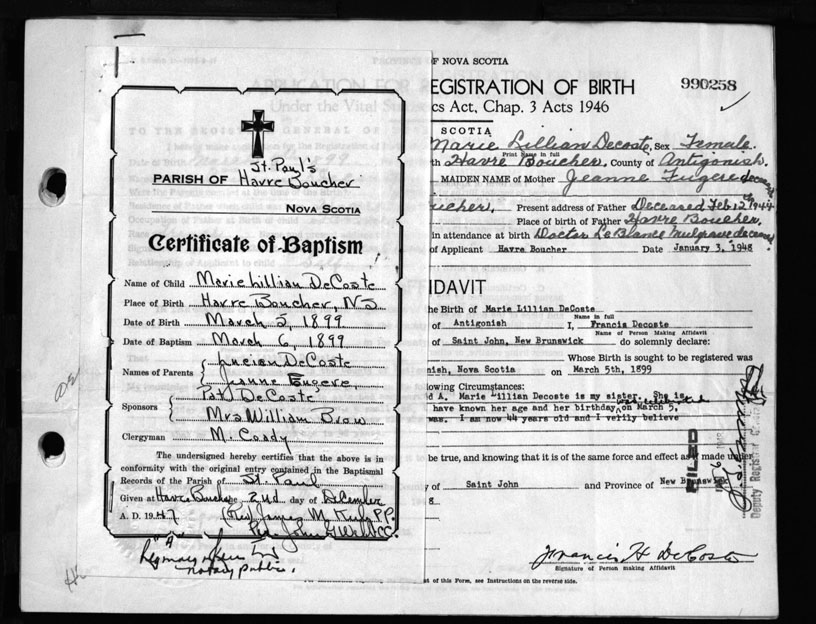 St. Paul's
PARISH OF Havre Boucher
NOVA SCOTIA
Certificate of Baptism
Name of Child Marie Lillian DeCoste
Place of Birth Havre Boucher, NS
Date of Birth March 5, 1899
Date of Baptism March 6, 1899
Names of Parents Lucian DeCoste
Jeanne Fugere,
Sponsors Pat DeCoste
Mrs William Brow
Clergyman M. Coady
The undersigned hereby certifies that the above is in
conformity with the original entry contained in the Baptismal
Records of the Parish of St. Paul
Given at Havre Boucher 2nd day of December
A. D. 1947 (Rev) James M. P.P.
Per John
"A"
notary public.
OF NOVA SCOTIA
REGISTRATION OF BIRTH
990258
cs Act, Chap. 3 Acts 1946
SCOTIA
Marie Lillian Decoste, Sex Female
Print Name in full
th Havre Boucher, County of Antigonish.
MAIDEN NAME of Mother Jeanne Fugere deceased
ucher. Present address of Father Deceased Feb 12 1944
Place of birth of Father Havre Boucher,
in attendance at birth Doctor LeBlanc Mulgrave deceased
of Applicant Havre Boucher Date January 3, 1948
FIDAVIT
the Birth of Marie Lillian DeCoste
Name in full
of Antigonish I, Francis Decoste
Name of Person Making Affidavit
of Saint John, New Brunswick do solemnly declare:
Whose Birth is sought to be registered was
nish, Nova Scotia on March 5th, 1899
llowing Circumstances:
d A. Marie Lillian Decoste is my sister. She is
have known her age and her birthday on March 5,
was. I am now 44 years old and I verily believe
be true, and knowing that it is of the same force and effect as if made under
y of Saint John and Province of New Brunswick
8
FILED
Deputy Registrar
Francis H DeCoste
Signature of Person making Affidavit
st of this Form, see Instructions on the reverse side.